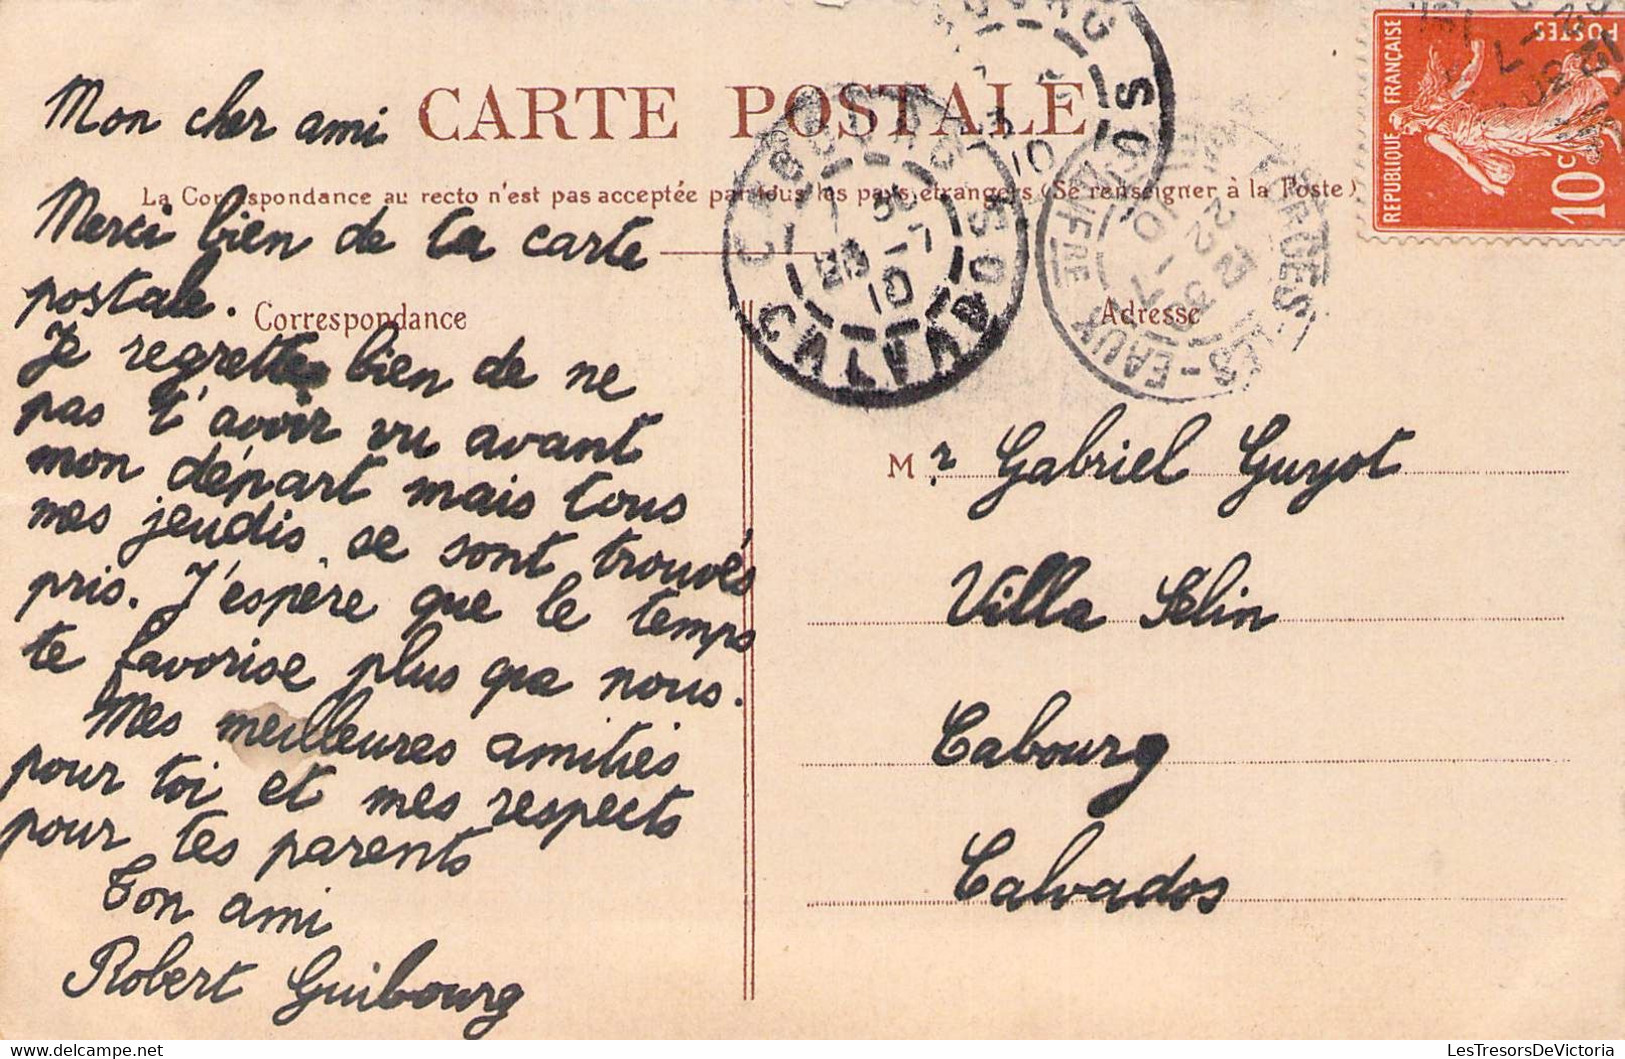 CARTE POSTALE
La Correspondance au recto n'est pas acceptée par tous les pays étrangers (Se renseigner à la Poste)
Correspondance
Mon cher ami
Merci bien de ta carte
postale.
Je regrette bien de ne
pas t'avoir vu avant
mon départ mais tous
mes jeudis se sont trouvés
pris. J'espère que le temps
te favorise plus que nous.
Mes meilleures amitiés
pour toi et mes respects
pour tes parents
Ton ami
Robert Guibourg
Adresse
Mr Gabriel Guyot
Villa Selin
Cabourg
Calvados
REPUBLIQUE FRANÇAISE
POSTES
10c
CABOURG
CALVADOS
10
LesTresorsDeVictoria